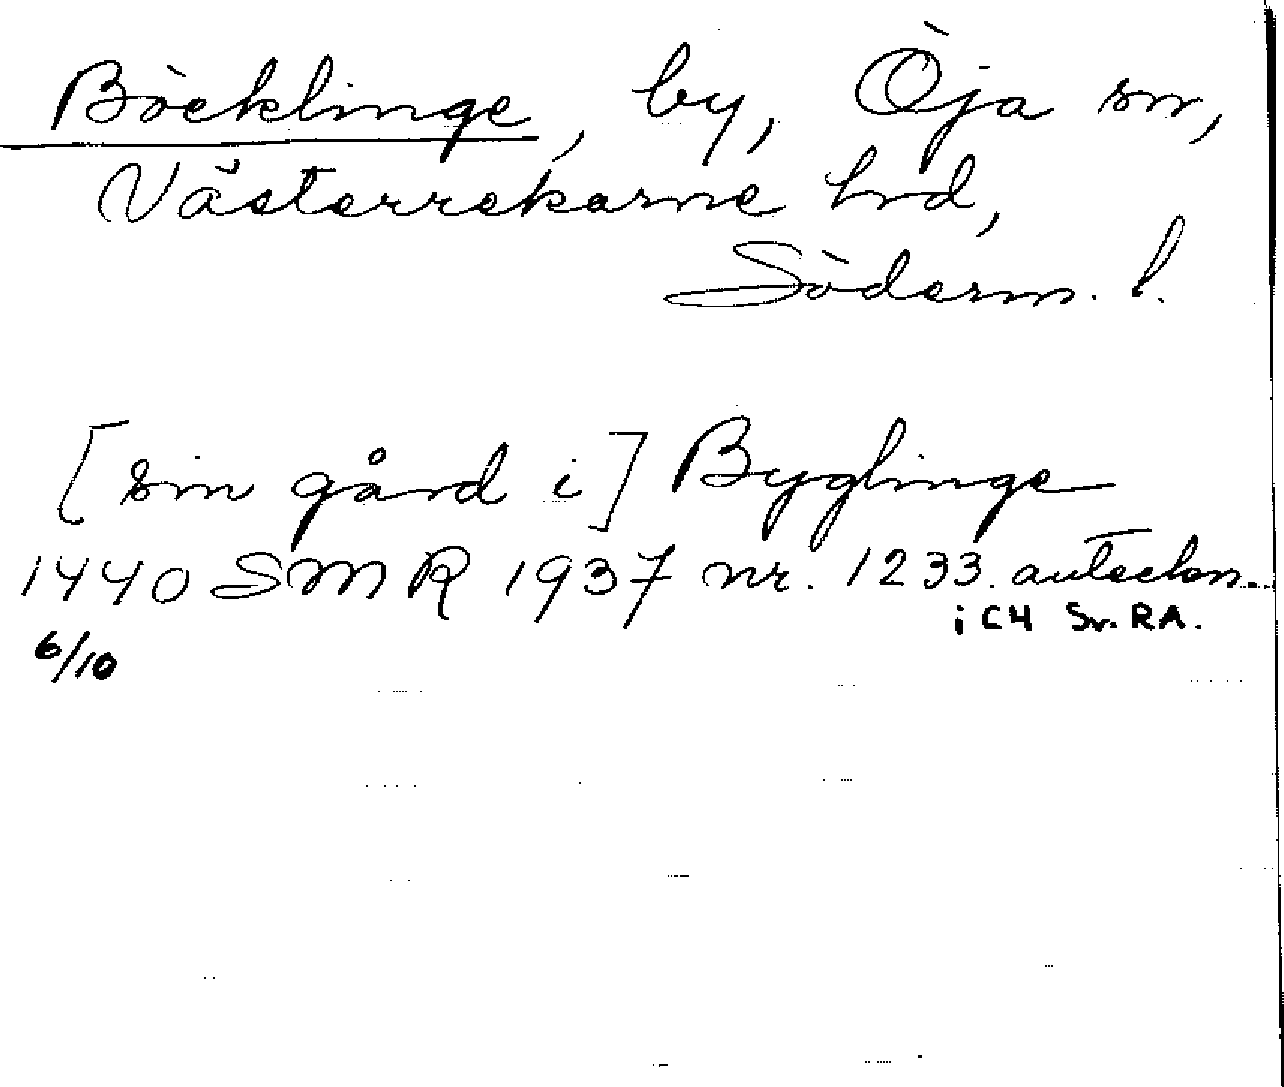 Böcklinge, by, Öja sn,
Västerrekarne hrd,
Söderm. l.
[sin gård i] Byglinge
1440 SMR 1937 nr. 1233. anteckn.
i C4 Sv. RA.
6/10